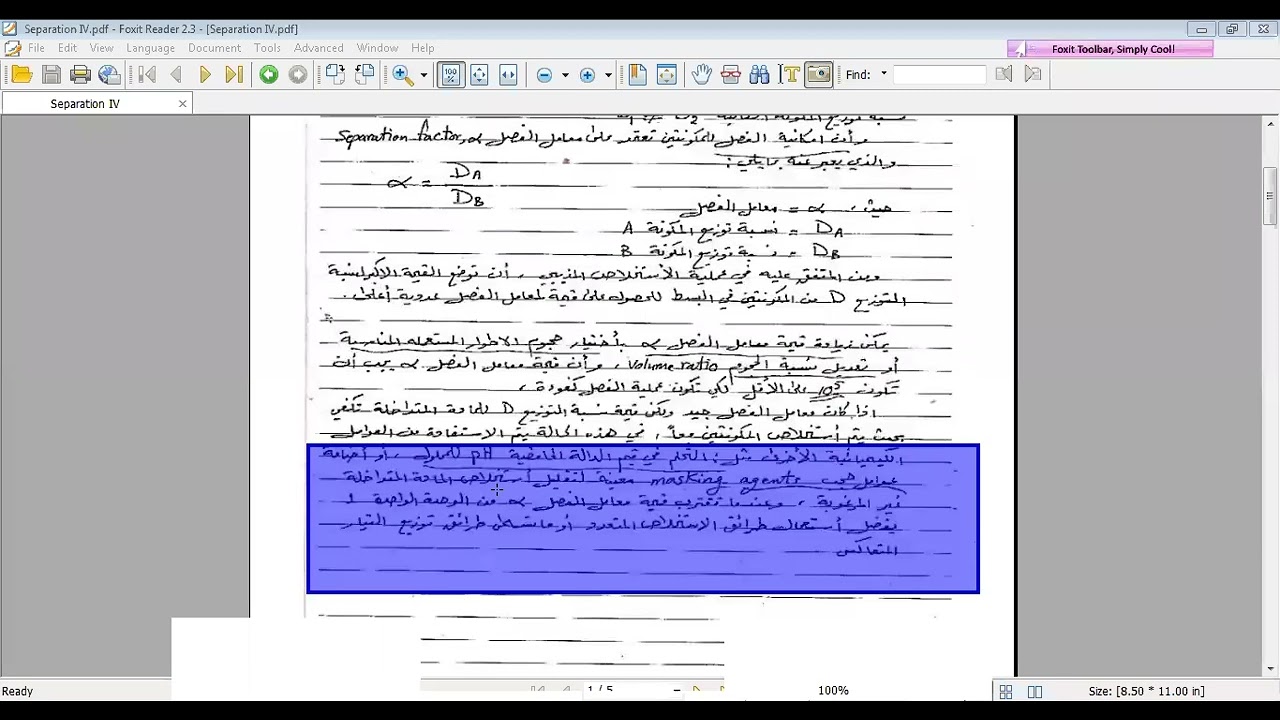 Separation IV.pdf - Foxit Reader 2.3 - [Separation IV.pdf]
File Edit View Language Document Tools Advanced Window Help
Foxit Toolbar, Simply Cool!
Find:
Separation IV
وأن امكانية الفصل للمكونتين تعتمد على معامل الفصل Separation factor, α
والذي يعبر عنه بمايلي :
α = D_A / D_B
حيث ، α = معامل الفصل
D_A = نسبة توزيع المكونة A
D_B = نسبة توزيع المكونة B
ومن المتفق عليه في عملية الأستخلاص المذيبي ، أن توضع القيمة الأكبر لنسبة
التوزيع D من المكونتين في البسط للحصول على قيمة لمعامل الفصل عددية أعلى .
يمكن زيادة قيمة معامل الفصل α بأختيار حجوم الاطوار المستعمله المناسبة
أو تعديل نسبة الحجوم Volume ratio ، وأن قيمة معامل الفصل α يجب أن
تكون 10⁵ على الأقل لكي تكون عملية الفصل كفوءة ،
اذا كان معامل الفصل جيد ولكن قيمة نسبة التوزيع D للمادة المتداخلة تكفي
بحيث يتم أستخلاص المكونتين معاً ، في هذه الحالة يتم الاستفادة من العوامل
الكيميائية الأخرى مثل : التحكم في قيم الدالة الحامضية pH للمحلول ، أو أضافة
عوامل حجب masking agents معينة لتقليل أستخلاص المادة المتداخلة
غير المرغوبة ، وعندما تقترب قيمة معامل الفصل α من الوحدة الواحدة 1
يفضل أستعمال طرائق الاستخلاص المتعدد أو ما تسمى طرائق توزيع التيار
المتعاكس
Ready
1 / 5
100%
Size: [8.50 * 11.00 in]